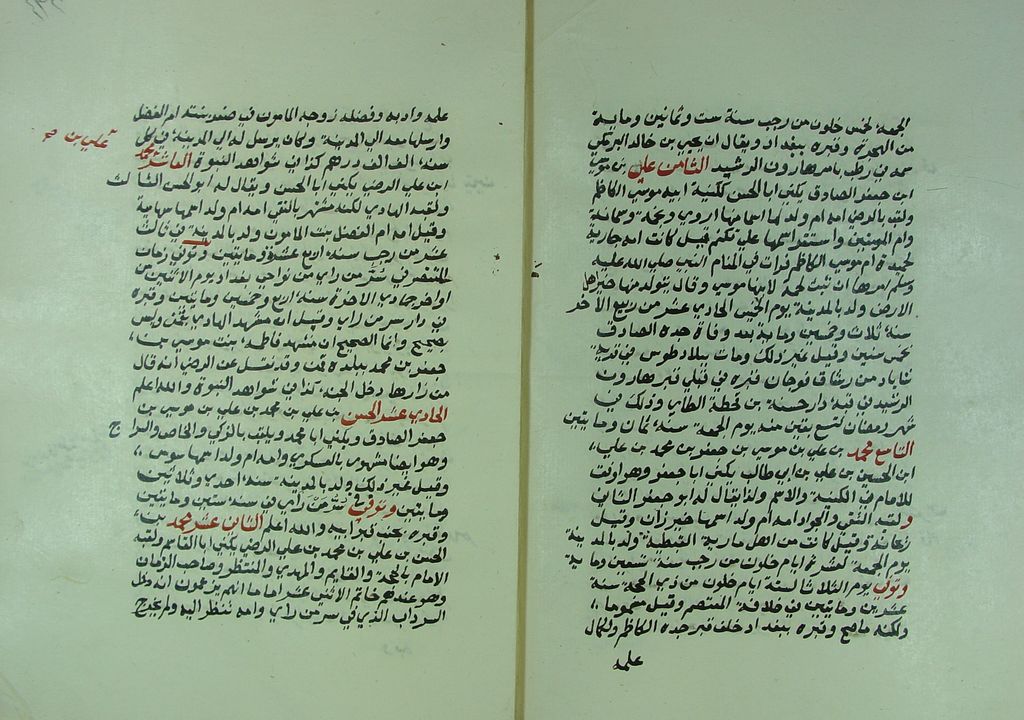 الجمعة لخمس خلون من رجب سنة ست وثمانين وماية
من الهجرة وقبره ببغداد ويقال ان يحيى بن خالد البرمكي
سمه في رطب بامر هارون الرشيد الثامن علي بن موسى
ابن جعفر الصادق يكنى ابا الحسن ككنية ابيه موسى الكاظم
ولقب بالرضي امه ام ولد لها اسما منها اروى ونجمة وسمانة
وام المومنين واستقر اسمها على تكتم قيل كانت امه جارية
لحميدة ام موسى الكاظم فرات في المنام النبي صلى الله عليه
وسلم امرها ان تهب نجمة لابنها موسى وقال يتولد منها خير اهل
الارض ولد بالمدينة يوم الخميس الحادي عشر من ربيع الآخر
سنة ثلاث وخمسين وماية بعد وفاة جده الصادق
بخمس سنين وقيل غير ذلك ومات ببلاد طوس في قرية
سناباد من رستاق نوجان قبره في قبلي قبر هارون
الرشيد في قبة دار حسنة بن قحطة الطاي وذلك في
شهر رمضان لتسع بقين منه يوم الجمعة سنة ثمان ومايتين
التاسع محمد بن علي بن موسى بن جعفر بن محمد بن علي
ابن الحسين بن علي بن ابي طالب يكنى ابا جعفر وهو اوفق
للامام في الكنية والاسم ولذا يقال له ابو جعفر الثاني
ولقبه التقي والجواد امه ام ولد اسمها خيزران وقيل
ريحانة وقيل كانت من اهل مارية القبطية ولد بالمدينة
يوم الجمعة لعشر ايام خلون من رجب سنة تسعين وماية
وتوفي يوم الثلاثا لستة ايام خلون من ذي الحجة سنة
عشرين ومايتين في خلافة المعتصم وقيل مسموما
ولكنه ما صح وقبره ببغداد خلف قبر جده الكاظم ولكمال
علمه
علمه وادبه وفضله زوجه المامون في صغر سنه ام الفضل
وارسلها معه الى المدينة وكان يرسل له الى المدينة في كل
سنة الف الف درهم كذا في شواهد النبوة العاشر علي بن محمد
ابن علي الرضي يكنى ابا الحسن ويقال له ابو الحسن الثالث
ولقبه الهادي لكنه مشهر بالنقي امه ام ولد اسمها سمانة
وقيل امه ام الفضل بنت المامون ولد بالمدينة في ثالث
عشر من رجب سنة اربع عشرة ومايتين وتوفي زمان
المنتصر في سر من راي من نواحي بغداد يوم الاثنين من
اواخر جمادي الاخرة سنة اربع وخمسين ومايتين وقبره
في دار سر من راي وقيل ان مشهد الهادي بقم وليس
بصحيح وانما الصحيح ان مشهد فاطمة بنت موسى بن
جعفر بن محمد ببلدة قم وقد نقل عن الرضي انه قال
من زارها دخل الجنة كذا في شواهد النبوة والله اعلم
الحادي عشر الحسن بن علي بن محمد بن علي بن موسى بن
جعفر الصادق ويكنى ابا محمد ويلقب بالزكي والخاص والسراج
وهو ايضا مشهور بالعسكري وامه ام ولد اسمها سوسن
وقيل غير ذلك ولد بالمدينة سنة احدى وثلاثين
ومايتين وتوفي في سر من راي في سنة ستين ومايتين
وقبره بجنب قبر ابيه والله اعلم الثاني عشر محمد بن
الحسن بن علي بن محمد بن علي الرضي يكنى ابا القاسم ولقبه
الامام بالحجة والقايم والمهدي والمنتظر وصاحب الزمان
وهو عندهم خاتم الاثني عشر اماما انهم يزعمون انه دخل
السرداب الذي في سر من راي وامه تنظر اليه ولم يخرج